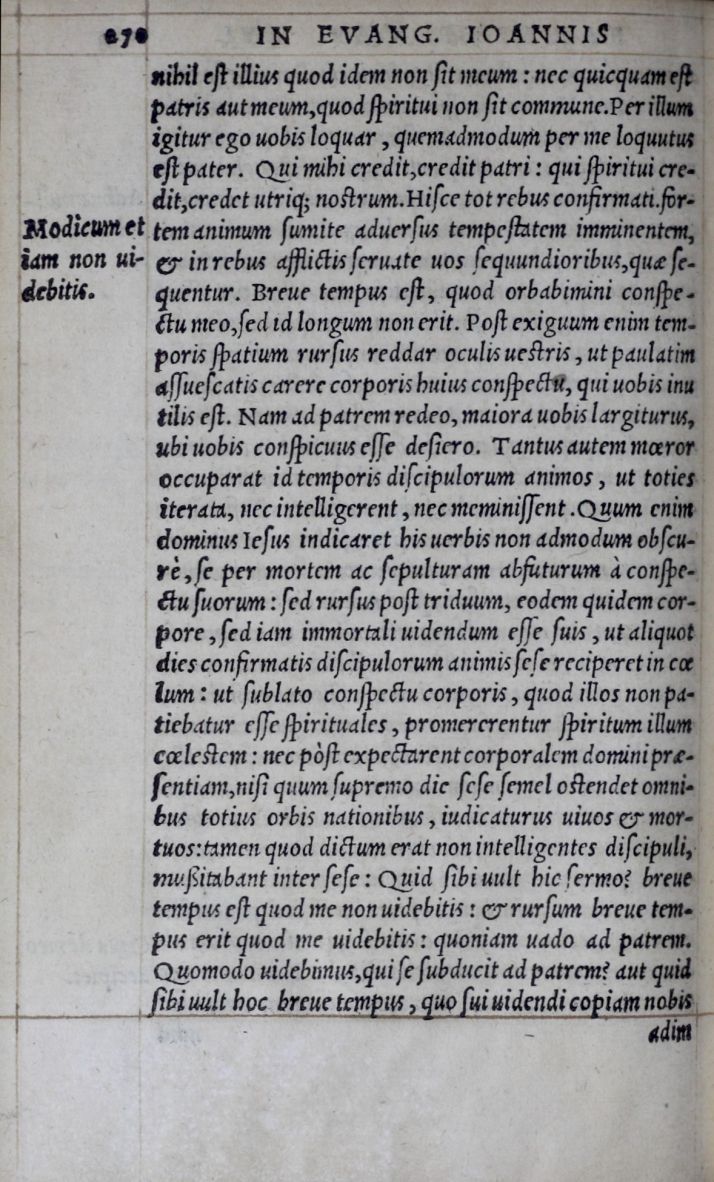 270 IN EVANG. IOANNIS
nihil eſt illius quod idem non ſit meum : nec quicquam eſt
patris aut meum,quod ſpiritui non ſit commune.Per illum
igitur ego uobis loquar , quemadmodum per me loquutus
eſt pater. Qui mihi credit,credit patri : qui ſpiritui cre-
dit,credet utriq; noſtrum.Hiſce tot rebus confirmati.for-
Modicum et
iam non ui-
debitis.
tem animum ſumite aduerſus tempeſtatem imminentem,
& in rebus afflictis ſeruate uos ſequundioribus,quæ ſe-
quentur. Breue tempus eſt, quod orbabimini conſpe-
ctu meo,ſed id longum non erit. Poſt exiguum enim tem-
poris ſpatium rurſus reddar oculis ueſtris , ut paulatim
aſſueſcatis carere corporis huius conſpectu, qui uobis inu
tilis eſt. Nam ad patrem redeo, maiora uobis largiturus,
ubi uobis conſpicuus eſſe deſiero. Tantus autem mœror
occuparat id temporis diſcipulorum animos , ut toties
iterata, nec intelligerent , nec meminiſſent .Quum enim
dominus Ieſus indicaret his uerbis non admodum obſcu-
rè , ſe per mortem ac ſepulturam abfuturum à conſpe-
ctu ſuorum : ſed rurſus poſt triduum, eodem quidem cor-
pore , ſed iam immortali uidendum eſſe ſuis , ut aliquot
dies confirmatis diſcipulorum animis ſeſe reciperet in cœ
lum : ut ſublato conſpectu corporis , quod illos non pa-
tiebatur eſſe ſpirituales , promererentur ſpiritum illum
cœleſtem : nec pòſt expectarent corporalem domini præ-
ſentiam,niſi quum ſupremo die ſeſe ſemel oſtendet omni-
bus totius orbis nationibus , iudicaturus uiuos & mor-
tuos:tamen quod dictum erat non intelligentes diſcipuli,
mußitabant inter ſeſe : Quid ſibi uult hic ſermo? breue
tempus eſt quod me non uidebitis : & rurſum breue tem-
pus erit quod me uidebitis : quoniam uado ad patrem.
Quomodo uidebimus,qui ſe ſubducit ad patrem? aut quid
ſibi uult hoc breue tempus , quo ſui uidendi copiam nobis
adim